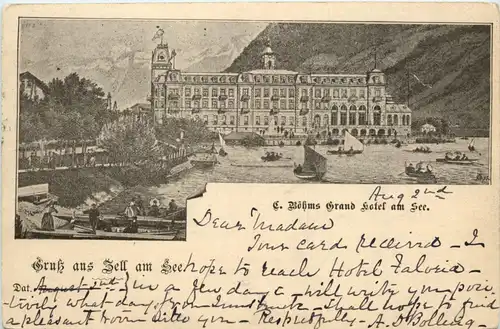 C. Böhms Grand Hotel am See.
Aug 2nd
Dear Madame
Your card received - I
Gruß aus Zell am See. hope to reach Hotel
Dat. in a few days - will write you posi-
tively what day from Innsbruck - Shall hope to find
a pleasant room Respectfully -